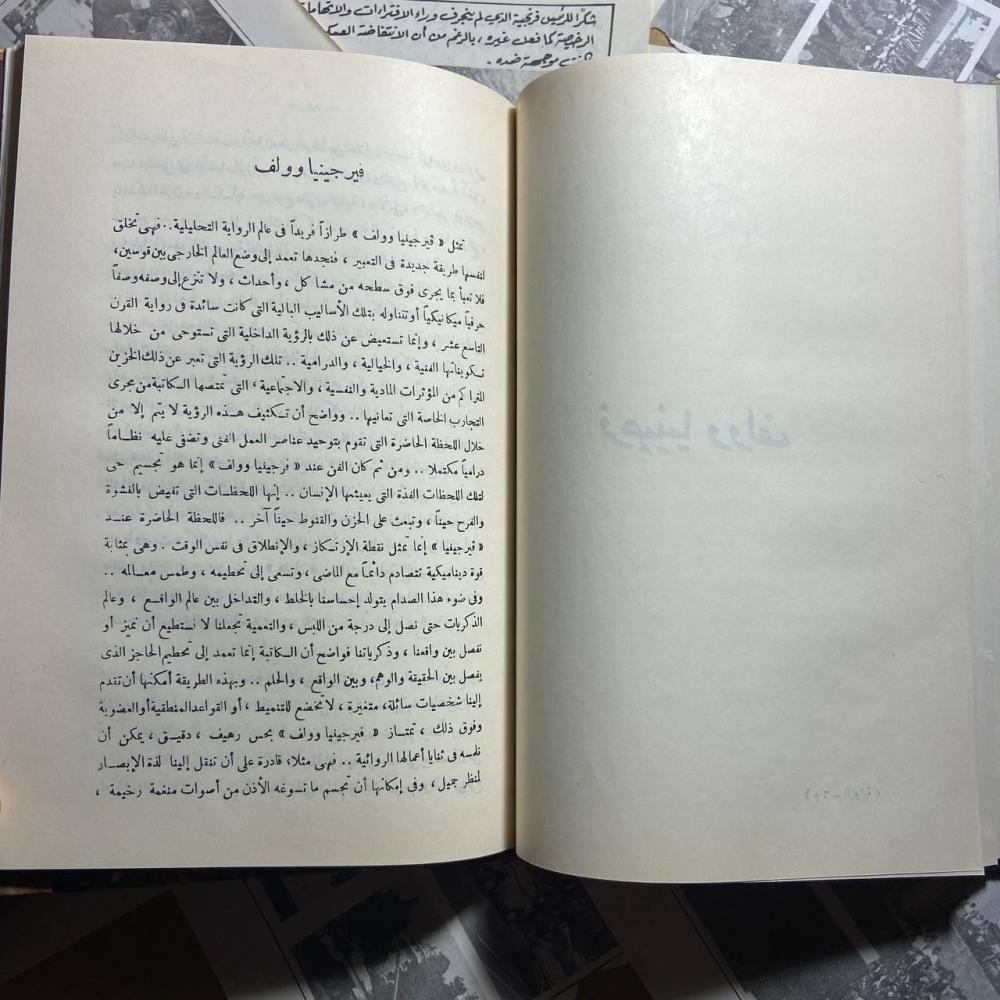 شكرًا للرئيس فرنجية الذي لم ينجرف وراء الافتراءات والاتهامات
الرخيصة كما فعل غيره ، بالرغم من أن الانتفاضة
كانت موجهة ضده .
فيرجينيا وولف
تمثل « ڤيرجينيا وولف » طرازاً فريداً فى عالم الرواية التحليلية .. فهى تخلق
لنفسها طريقة جديدة فى التعبير ، فنجدها تعمد إلى وضع العالم الخارجى بين قوسين ،
فلا تعبأ بما يجرى فوق سطحه من مشاكل ، وأحداث ، ولا تنزع إلى وصفه وصفاً
حرفياً ميكانيكياً أو تناوله بتلك الأساليب البالية التى كانت سائدة فى رواية القرن
التاسع عشر ، وإنما تستعيض عن ذلك بالرؤية الداخلية التى تستوحى من خلالها
تكويناتها الفنية ، والخيالية ، والدرامية .. تلك الرؤية التى تعبر عن ذلك الخزين
المتراكم من المؤثرات المادية والنفسية ، والاجتماعية ، التى تمتصها الكاتبة من مجرى
التجارب الخاصة التى تعانيها .. وواضح أن تكثيف هذه الرؤية لا يتم إلا من
خلال اللحظة الحاضرة التى تقوم بتوحيد عناصر العمل الفنى وتضفى عليه نظاماً
درامياً مكتملا .. ومن ثم كان الفن عند « فرجينيا وولف » إنما هو تجسيم حى
لتلك اللحظات الفذة التى يعيشها الإنسان .. إنها اللحظات التى تفيض بالنشوة
والفرح حيناً ، وتبعث على الحزن والقنوط حيناً آخر .. فاللحظة الحاضرة عند
« ڤيرجينيا » إنما تمثل نقطة الإرتكاز ، والإنطلاق فى نفس الوقت . وهى بمثابة
قوة ديناميكية تتصادم دائماً مع الماضى ، وتسعى إلى تحطيمه ، وطمس معالمه ..
وفى ضوء هذا الصدام يتولد إحساسنا بالخلط ، والتداخل بين عالم الواقع ، وعالم
الذكريات حتى نصل إلى درجة من اللبس ، والتعمية تجعلنا لا نستطيع أن نميز أو
نفصل بين واقعنا ، وذكرياتنا فواضح أن الكاتبة إنما تعمد إلى تحطيم الحاجز الذى
يفصل بين الحقيقة والوهم ، وبين الواقع ، والحلم .. وبهذه الطريقة أمكنها أن تقدم
إلينا شخصيات سائلة ، متغيرة ، لا تخضع للتنميط ، أو القواعد المنطقية أو العضوية
وفوق ذلك ، تمتاز « فيرجينيا وولف » بحس رهيف ، دقيق ، يمكن أن
نلمسه فى ثنايا أعمالها الروائية .. فهى مثلا ، قادرة على أن تنقل إلينا لذة الإبصار
لمنظر جميل ، وفى إمكانها أن تجسم ما تسوغه الأذن من أصوات منغمة رخيمة ،
فرجينيا وولف